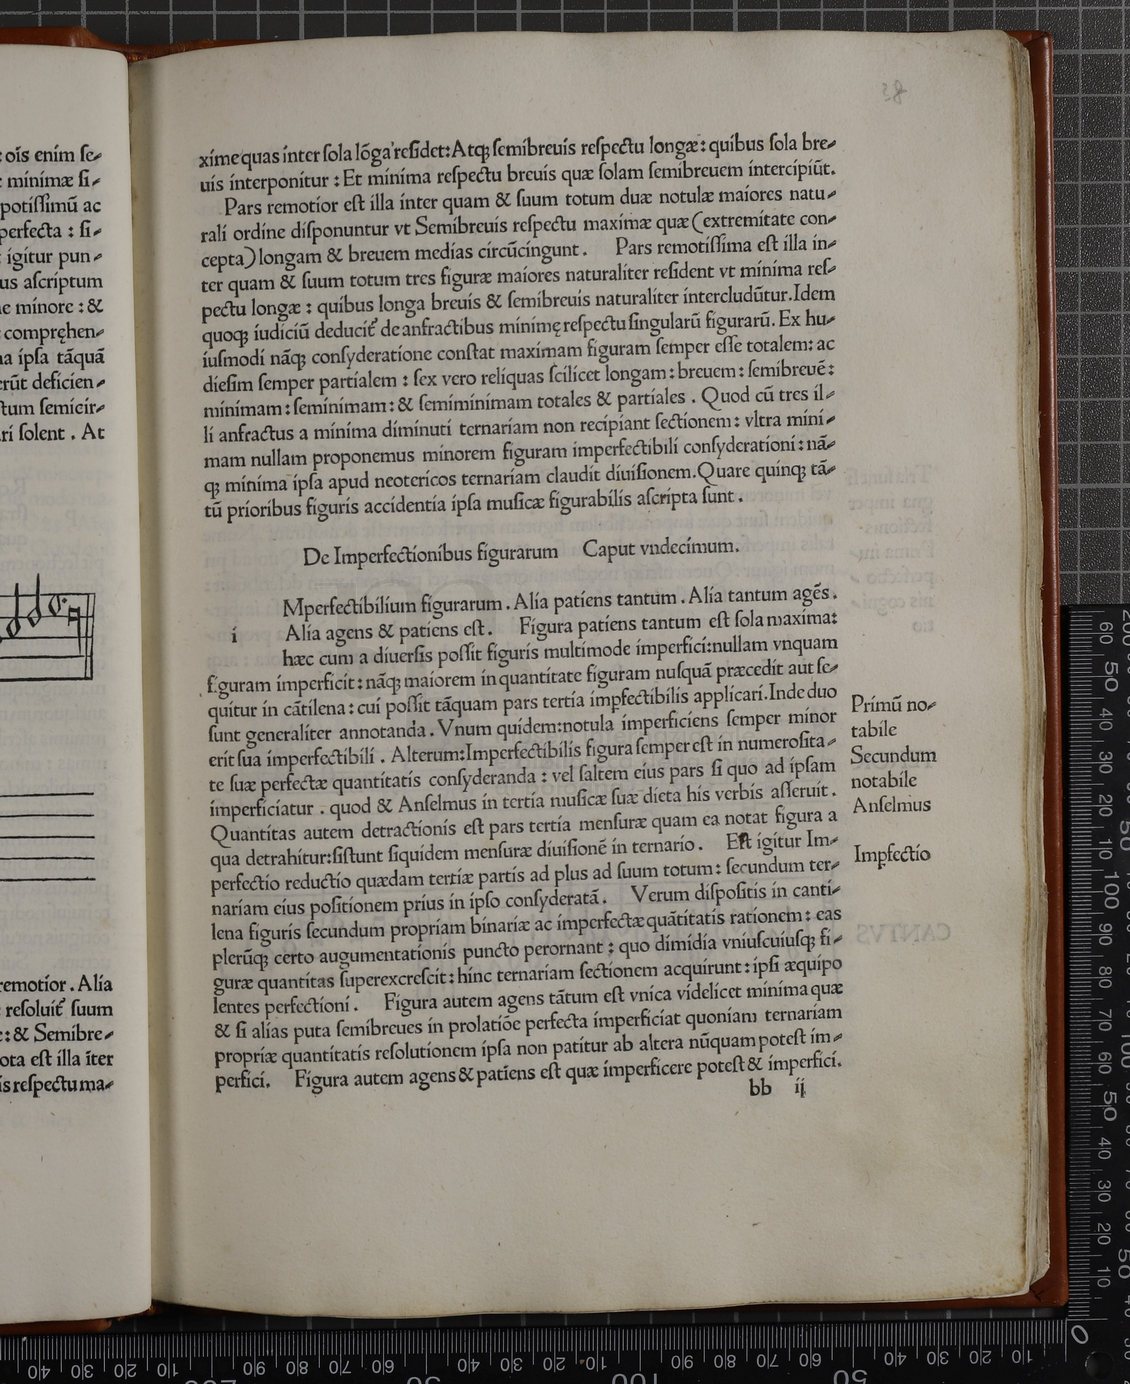 : oīs enim ſe-
: minimæ ſi-
potiſſimū ac
perfecta : ſi-
: igitur pun-
us aſcriptum
ne minore : &
compręhen-
na ipſa tāquā
erūt deficien-
tum ſemicir-
ri ſolent . At
remotior . Alia
: reſoluit᷑ ſuum
e: & Semibre-
ota eſt illa īter
is reſpectu ma-
xime quas inter ſola lōga reſidet: Atq; ſemibreuis reſpectu longæ: quibus ſola bre-
uis interponitur : Et minima reſpectu breuis quæ ſolam ſemibreuem intercipiūt.
Pars remotior eſt illa inter quam & ſuum totum duæ notulæ maiores natu-
rali ordine diſponuntur vt Semibreuis reſpectu maximæ quæ (extremitate con-
cepta) longam & breuem medias circūcingunt . Pars remotiſſima eſt illa in-
ter quam & ſuum totum tres figuræ maiores naturaliter reſident vt minima reſ-
pectu longæ : quibus longa breuis & ſemibreuis naturaliter intercludūtur. Idem
quoq; iudiciū deducit᷑ de anfractibus minimę reſpectu ſingularū figurarū. Ex hu-
iuſmodi nāq; conſyderatione conſtat maximam figuram ſemper eſſe totalem: ac
dieſim ſemper partialem : ſex vero reliquas ſcilicet longam: breuem: ſemibreuē:
minimam: ſeminimam: & ſemiminimam totales & partiales . Quod cū tres il-
li anfractus a minima diminuti ternariam non recipiant ſectionem: vltra mini-
mam nullam proponemus minorem figuram imperfectibili conſyderationi: nā-
q; minima ipſa apud neotericos ternariam claudit diuiſionem. Quare quinq; tā-
tū prioribus figuris accidentia ipſa muſicæ figurabilis aſcripta ſunt .
De Imperfectionibus figurarum Caput vndecimum.
Mperfectibilium figurarum . Alia patiens tantum . Alia tantum agēs .
i Alia agens & patiens eſt . Figura patiens tantum eſt ſola maxima:
hæc cum a diuerſis poſſit figuris multimode imperfici: nullam vnquam
figuram imperficit : nāq; maiorem in quantitate figuram nuſquā præcedit aut ſe-
quitur in cātilena : cui poſſit tāquam pars tertia imꝑfectibilis applicari. Inde duo
ſunt generaliter annotanda . Vnum quidem: notula imperficiens ſemper minor
erit ſua imperfectibili . Alterum: Imperfectibilis figura ſemper eſt in numeroſita-
te ſuæ perfectæ quantitatis conſyderanda : vel ſaltem eius pars ſi quo ad ipſam
imperficiatur . quod & Anſelmus in tertia muſicæ ſuæ dieta his verbis aſſeruit .
Quantitas autem detractionis eſt pars tertia menſuræ quam ea notat figura a
qua detrahitur: ſiſtunt ſiquidem menſuræ diuiſionē in ternario . Eſt igitur Im-
perfectio reductio quædam tertiæ partis ad plus ad ſuum totum : ſecundum ter-
nariam eius poſitionem prius in ipſo conſyderatā . Verum diſpoſitis in canti-
lena figuris ſecundum propriam binariæ ac imperfectæ quātitatis rationem : eas
plerūq; certo augumentationis puncto perornant : quo dimidia vniuſcuiuſq; fi-
guræ quantitas ſuperexcreſcit : hinc ternariam ſectionem acquirunt : ipſi æquipo
lentes perfectioni . Figura autem agens tātum eſt vnica videlicet minima quæ
& ſi alias puta ſemibreues in prolatiōe perfecta imperficiat quoniam ternariam
propriæ quantitatis reſolutionem ipſa non patitur ab altera nūquam poteſt im-
perfici. Figura autem agens & patiens eſt quæ imperficere poteſt & imperfici.
bb ij
Primū no-
tabile
Secundum
notabile
Anſelmus
Imꝑfectio